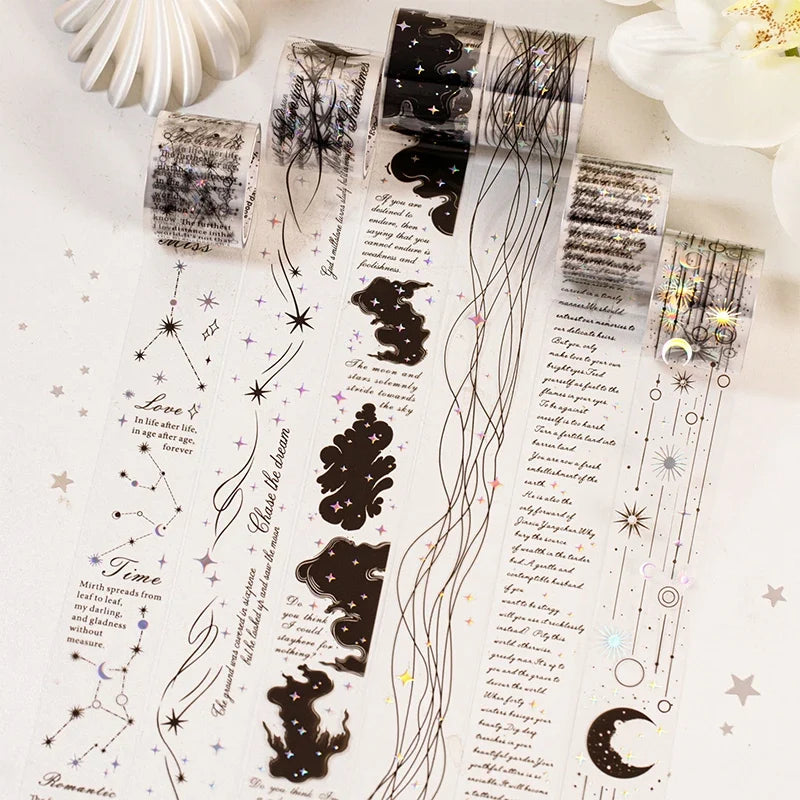 Miss
Love
In life after life,
in age after age,
forever
Time
Mirth spreads from
leaf to leaf,
my darling,
and gladness
without
measure.
Romantic
Sometime
God's millstone loves slowly but
Chase the dream
The ground was covered in sixpence
but he looked up and saw the moon
If you are
destined to
endure, then
saying that you
cannot endure is
weakness and
foolishness.
The moon and
stars solemnly
stride towards
the sky
Do
you think
I could
stayhere for
nothing?
Do you think I
carved in a timely
manner.We should
entrust our memories to
our delicate heirs.
But you, only
make love to your own
bright eyes Feed
yourself as fuel to the
flames in your eyes
To be against
oneself is too harsh
Turn a fertile land into
barren land
You are now a fresh
embellishment of the
earth
He is also the
only forward of
Jinxiu Yangchun Why
bury the source
of wealth in the tender
bud. A gentle and
contemptible husband,
if you
want to be stingy
will you use it recklessly
instead? Pity this
world, otherwise,
greedy man It's up to
you and the grave to
devour the world
When forty
winters besiege your
beauty Dig deep
trenches in your
beautiful garden Your
youthful attire is so
enviable At that time